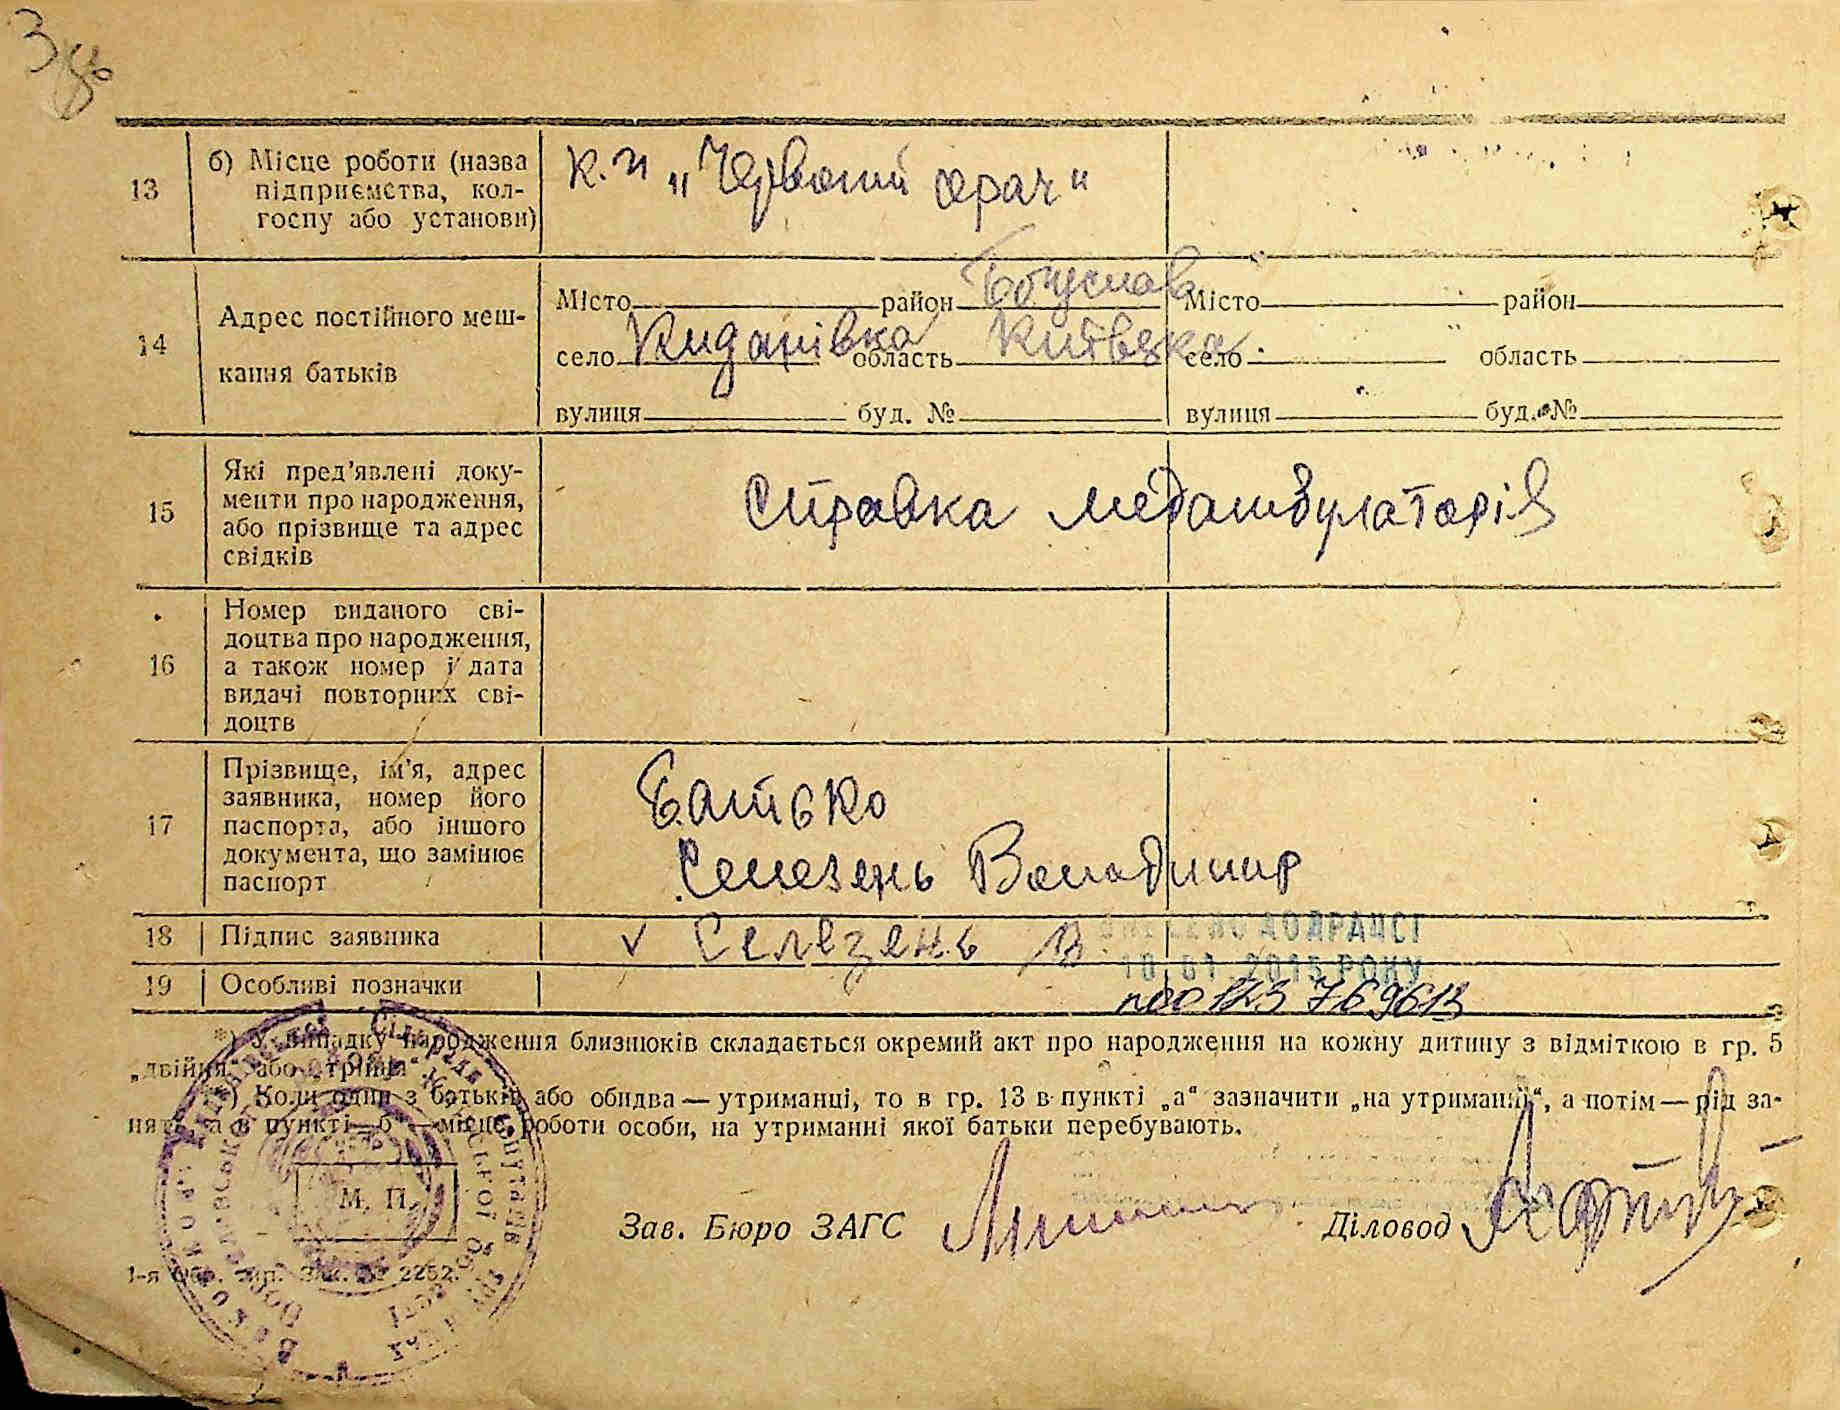 13
б) Місце роботи (назва
підприємства, кол-
госпу або установи)
к.г. „Червоний орач"
14
Адрес постійного меш-
кання батьків
Місто район Богуслав
село Киданівка область Київска
вулиця буд. №
Місто район
село область
вулиця буд. №
15
Які пред’явлені доку-
менти про народження,
або прізвище та адрес
свідків
Справка медамбулаторія
16
Номер виданого сві-
доцтва про народження,
а також номер і дата
видачі повторних сві-
доцтв
17
Прізвище, ім’я, адрес
заявника, номер його
паспорта, або іншого
документа, що замінює
паспорт
Батько
Селезень Володимир
18 Підпис заявника
v Селезень В
ВНЕСЕНО ДО ДРАЦСГ
2015 РОКУ
19 Особливі позначки
*) У випадку народження близнюків складається окремий акт про народження на кожну дитину з відміткою в гр. 5
„двійня“ або „трійця“.
**) Коли один з батьків або обидва — утриманці, то в гр. 13 в пункті „а“ зазначити „на утриманні“, а потім — рід за-
нять, а в пункті „б“ — місце роботи особи, на утриманні якої батьки перебувають.
М. П.
Зав. Бюро ЗАГС
Діловод
2252.